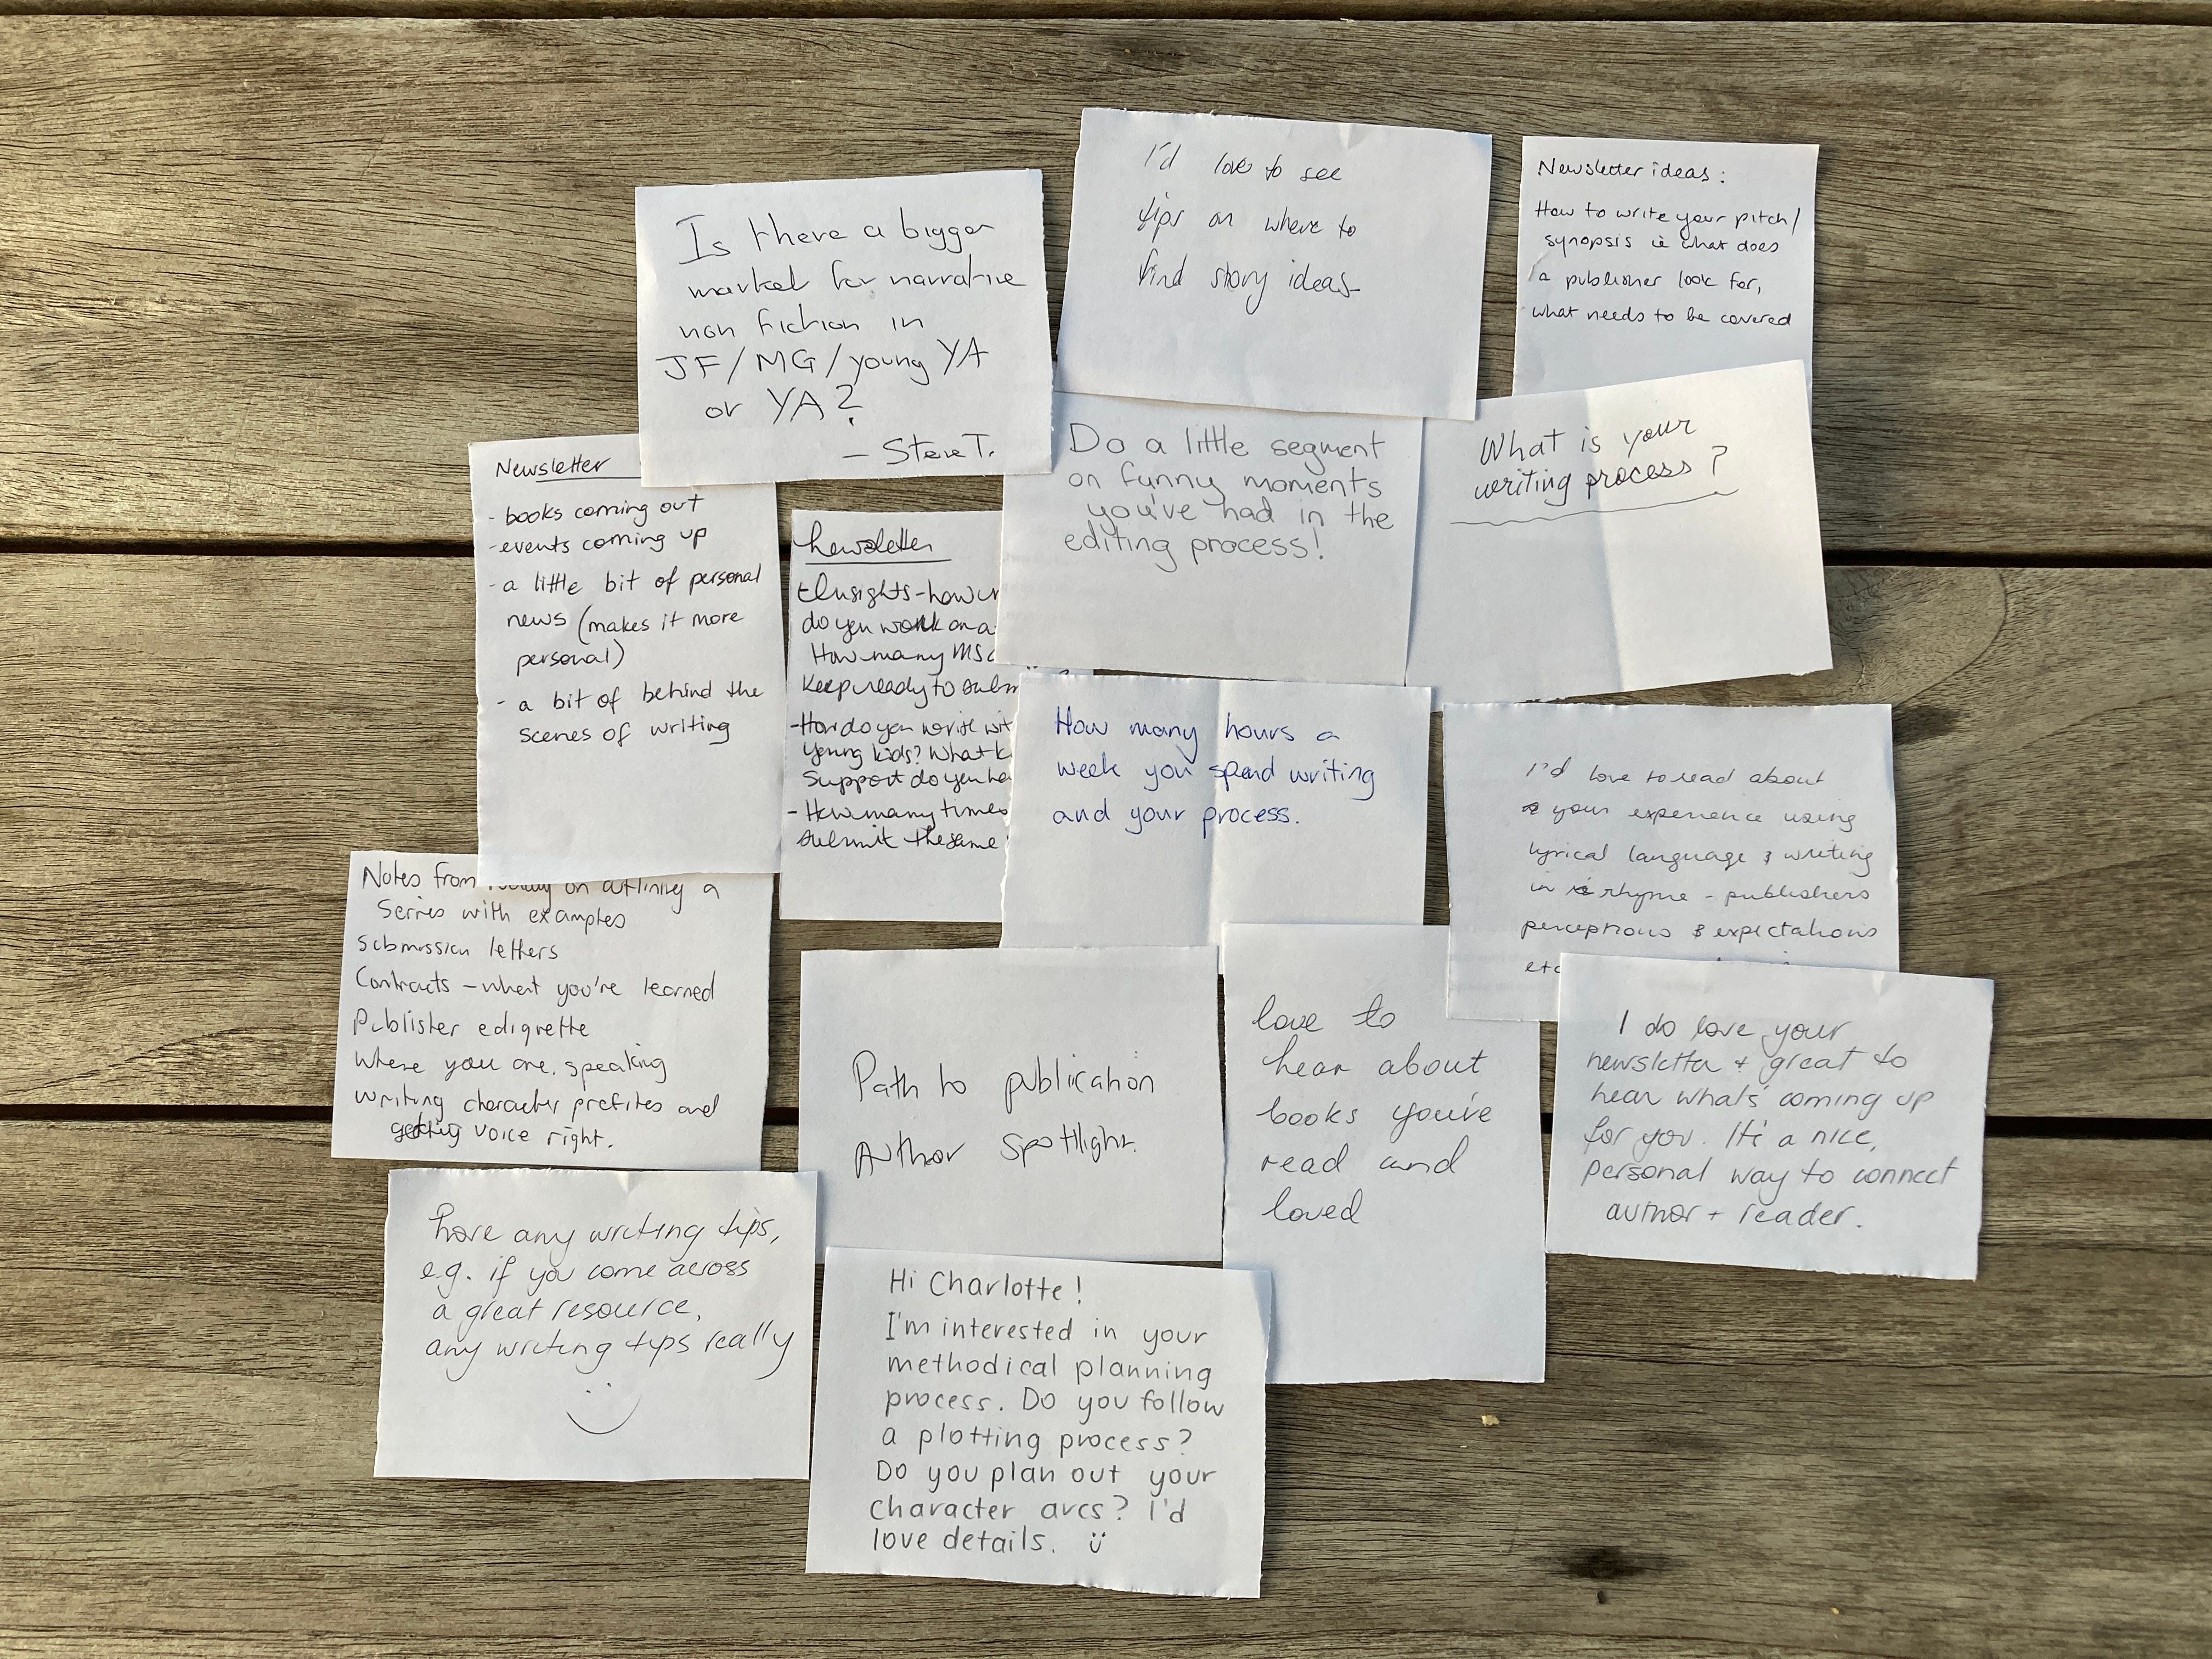 Is there a bigger
market for narrative
non fiction in
JF/MG/young YA
or YA?
— Steve T.
I'd love to see
tips on where to
find story ideas
Newsletter ideas:
How to write your pitch/
synopsis ie what does
a publisher look for,
what needs to be covered
Newsletter
- books coming out
- events coming up
- a little bit of personal
news (makes it more
personal)
- a bit of behind the
scenes of writing
Newsletter
Insights - how
do you work on a
How many MS
keep ready to subm
- How do you write wit
young kids? What k
Support do you ha
- How many times
submit the same
Do a little segment
on funny moments
you've had in the
editing process!
What is your
writing process?
How many hours a
week you spend writing
and your process.
I'd love to read about
your experience using
lyrical language & writing
in rhyme - publishers
perceptions & expectations
etc
Notes from today on outlining a
series with examples
Submission letters
Contracts - what you've learned
Publisher ediquette
Where you are speaking
Writing character profiles and
getting voice right.
Path to publication
Author spotlight.
love to
hear about
books you've
read and
loved
I do love your
newsletter + great to
hear what's coming up
for you. It's a nice,
personal way to connect
author + reader.
have any writing tips,
e.g. if you come across
a great resource,
any writing tips really
Hi Charlotte!
I'm interested in your
methodical planning
process. Do you follow
a plotting process?
Do you plan out your
character arcs? I'd
love details.